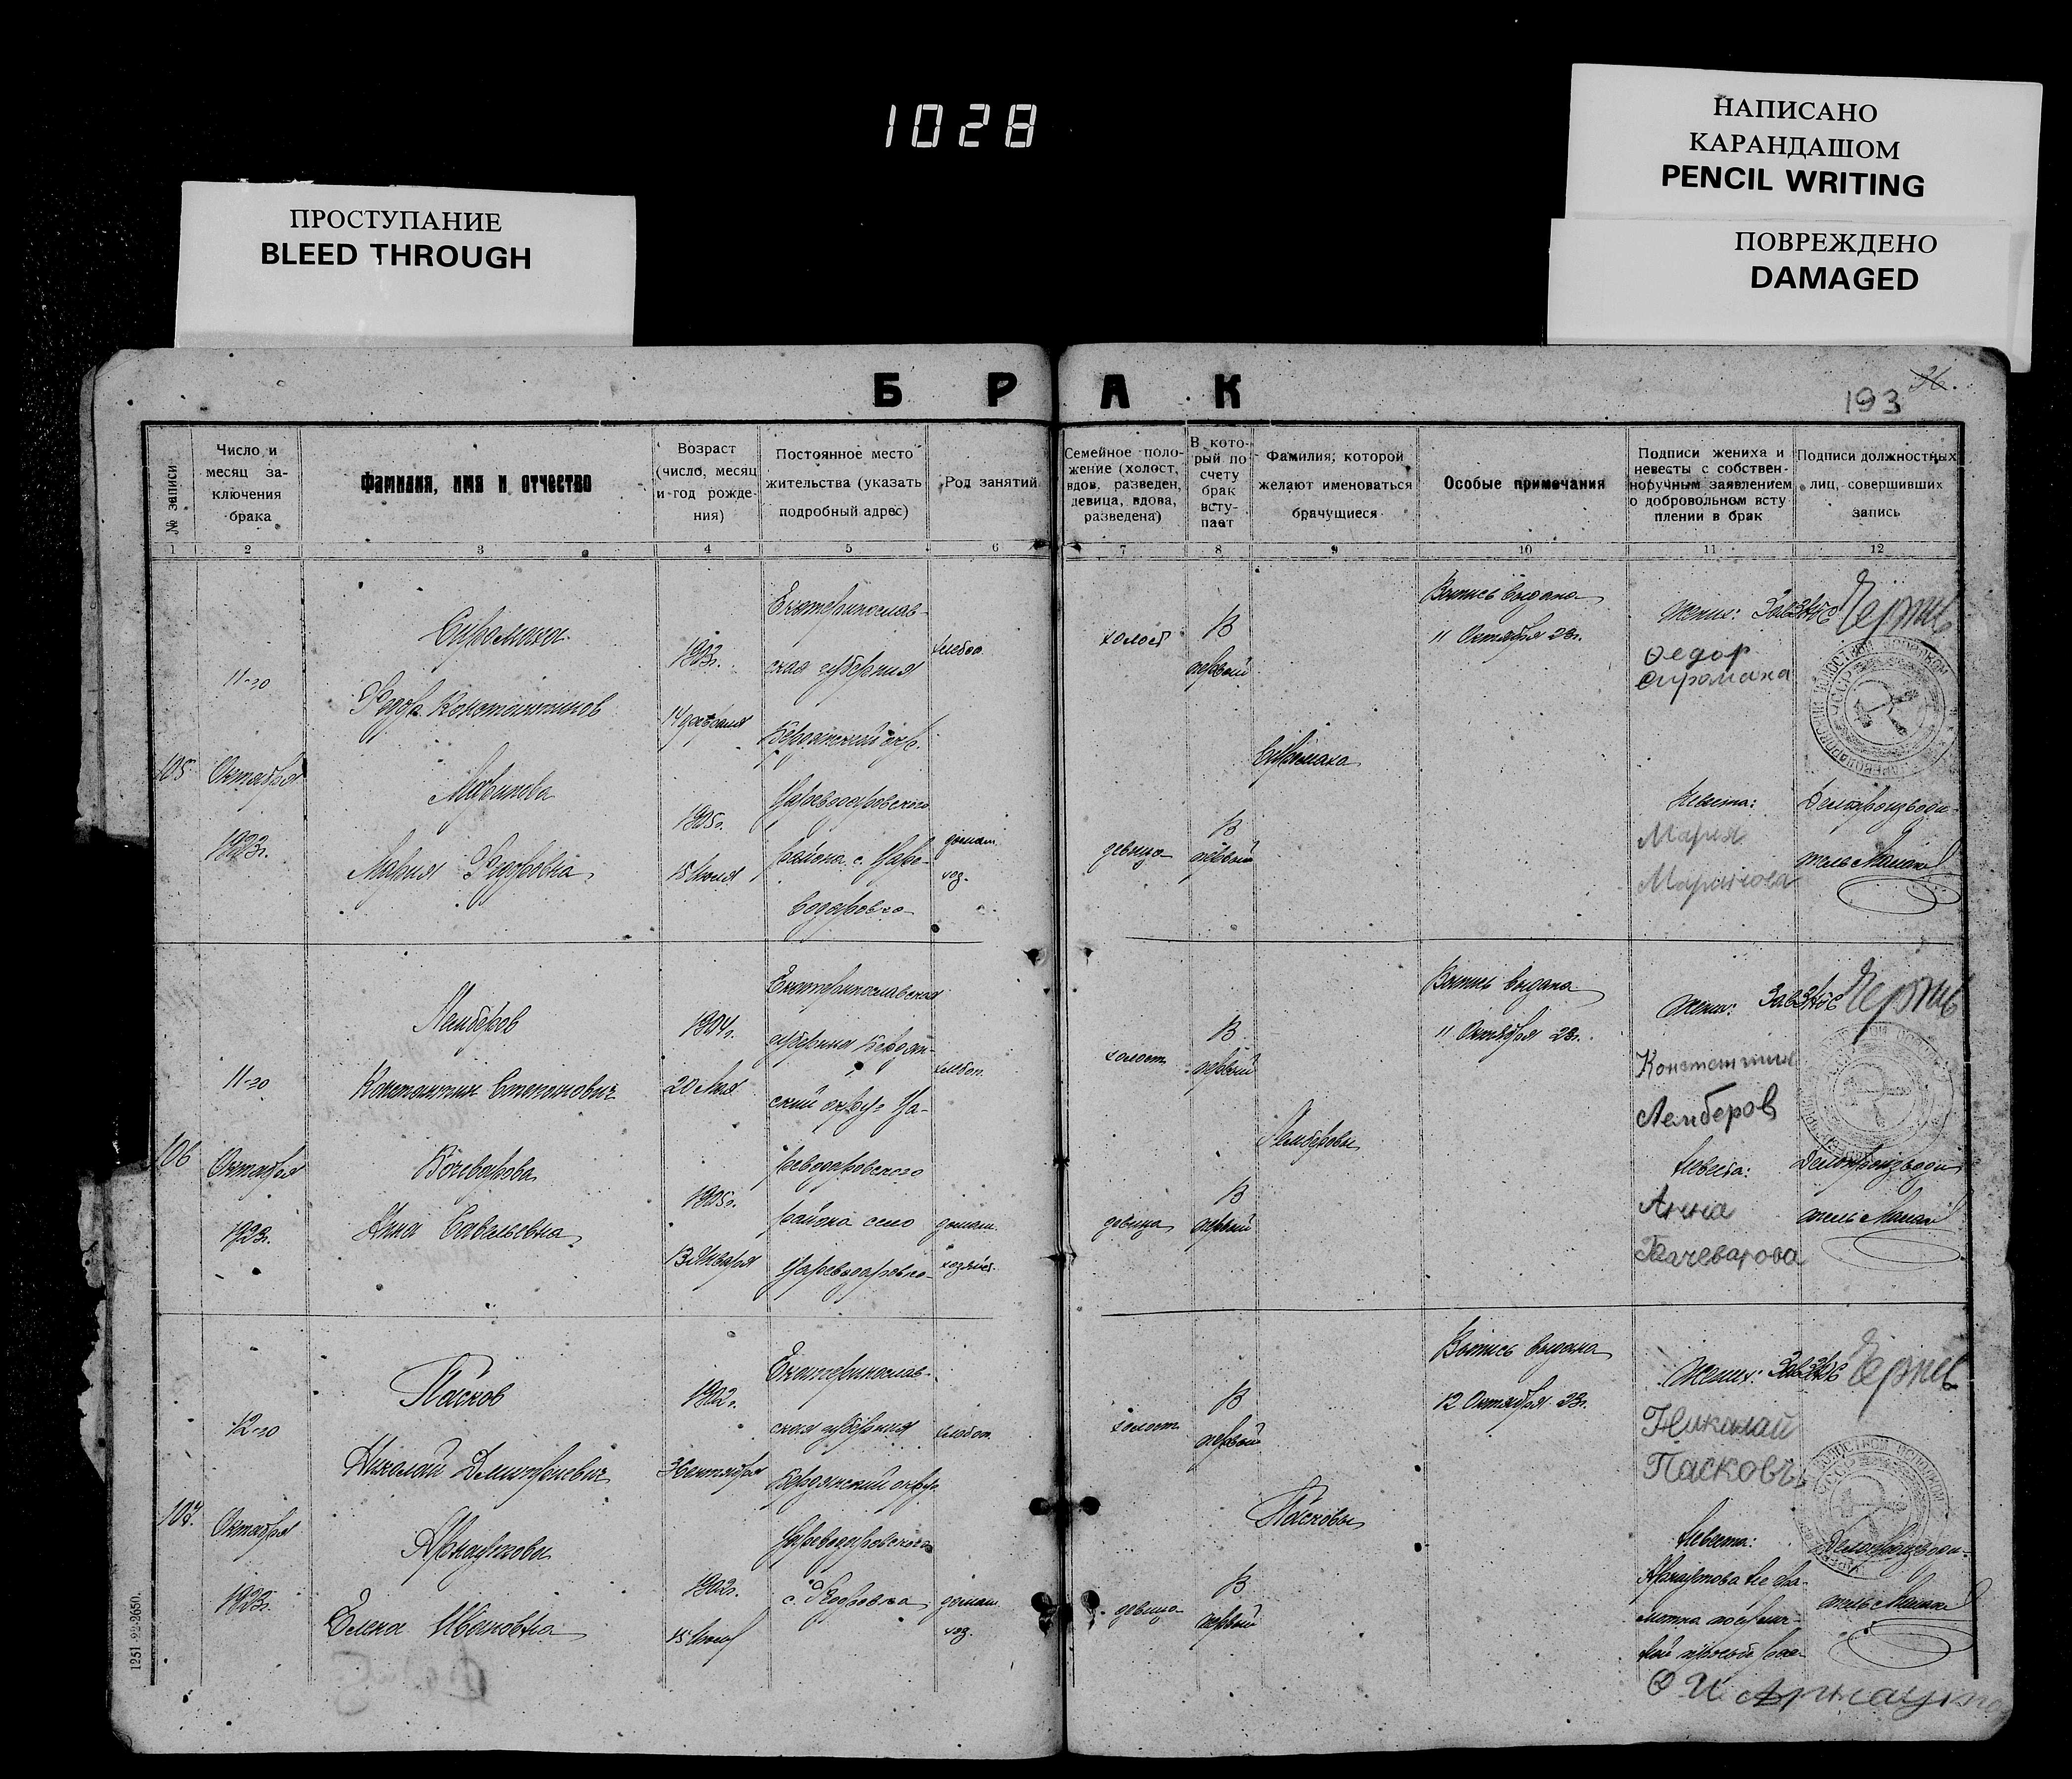 1028
НАПИСАНО
КАРАНДАШОМ
PENCIL WRITING
ПРОСТУПАНИЕ
BLEED THROUGH
ПОВРЕЖДЕНО
DAMAGED
БРАК
36.
193
№ записи
Число и
месяц за-
ключения
брака
Фамилия, имя и отчество
Возраст
(число, месяц
и год рожде-
ния)
Постоянное место
жительства (указать
подробный адрес)
Род занятий
Семейное поло-
жение (холост,
вдов, разведен,
девица, вдова,
разведена)
В кото-
рый по
счету
брак
всту-
пает
Фамилия, которой
желают именоваться
брачущиеся
Особые примечания
Подписи жениха и
невесты с собствен-
норучным заявлением
о добровольном всту
плении в брак
Подписи должностных
лиц, совершивших
запись
1 2 3 4 5 6 7 8 9 10 11 12
105
11-го
Октября
1923г.
Сиромаха
Федор Константинов
Мария Федоровна
1903г.
14 февраля
1905г.
15 Июля
Екатеринослав-
ская губерния
Бердянский окр.
Цареводаровского
района с. Царе-
водаровка
хлебоп.
домаш.
хоз.
холост
девица
В
первый
В
первый
Сиромаха
Выпись выдана
11 Октября 23г.
Жених:
Федор
Сиромаха
Невеста:
Мария
Маринова
ЗавЗАГС
Делопроизводи-
тель
106
11-го
Октября
1923г.
Лемберов
Константин Степанович
Бочеварова
Анна Савельевна
1904г.
20 Мая
1905г.
13 Января
Екатеринославская
губерния Бердян-
ский округ Ца-
реводаровского
района село
Цареводаровка
хлебоп.
домаш.
хозяйст.
холост
девица
В
первый
В
первый
Лемберовы
Выпись выдана
11 Октября 23г.
Жених:
Константин
Лемберов
Невеста:
Анна
Бачеварова
ЗавЗАГС
Делопроизводи
тель
107.
12-го
Октября
1923г.
Пасков
Николай Дмитриевич
Арнаутова
Елена Ивановна
1902г.
1902г.
15 Июля
Екатеринослав-
ская губерния
Бердянский округ
Цареводаровского
с. Федоровка
хлебоп.
домаш.
хоз.
холост
девица
В
первый
В
первый
Пасковы
Выпись выдана
12 Октября 23г.
Жених:
Николай
Пасковъ
Невеста:
Арнаутова не гра-
мотна
ЗавЗАГС
Делопроизводи-
тель
1251 22-2650.